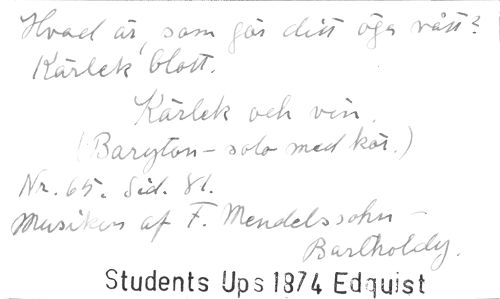 Hvad är, som gör ditt öga vått?
Kärlek blott.
Kärlek och vin.
(Baryton-solo med kör.)
Nr. 65. Sid. 81.
Musiken af F. Mendelssohn-
Bartholdy.
Students Ups 1874 Edquist